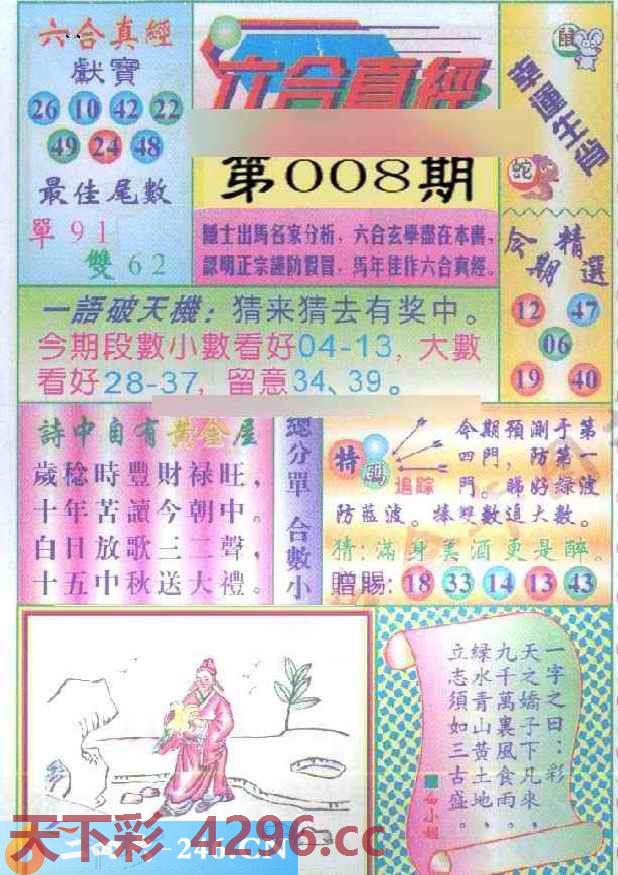 六合真經
獻寶
26 10 42 22
49 24 48
最佳尾數
單 9 1
雙 6 2
六合真經
第008期
隱士出馬名家分析，六合玄學盡在本書，
認明正宗謹防假冒，馬年佳作六合真經。
鼠
幸運生肖
蛇
今期精選
12 47
06
19 40
一語破天機：猜来猜去有奖中。
今期段數小數看好04-13，大數
看好28-37，留意34、39。
詩中自有黃金屋
歲稔時豐財禄旺，
十年苦讀今朝中。
白日放歌三二聲，
十五中秋送大禮。
總分單 合數小
特碼
追踪
今期預測于第
四門，防第一
門。睇好绿波
防藍波。捧雙數追大數。
猜：滿身美酒更是醉。
贈賜：18 33 14 13 43
一字之曰：彩
天之嬌子下凡来，
九千萬裏風食雨，
绿水青山黃土地，
立志須如三古盛。
小姐
天下彩 4296.cc
246.CN